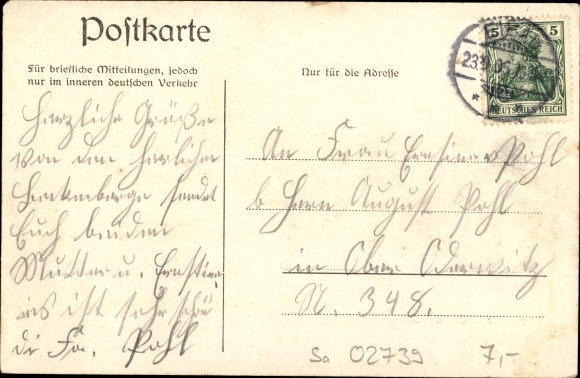 Postkarte
Für briefliche Mitteilungen, jedoch
nur im inneren deutschen Verkehr
Nur für die Adresse
5 5
DEUTSCHES REICH
Herzliche Grüße
von den herlichen
sendet
Euch beiden
Mutter u. Ernstine
es ist sehr schön
die Fa. Pohl
An Frau Ernstine Pohl
b Herrn August Pohl
in Ober Oderwitz
N. 348.
Sa 02739 7,-